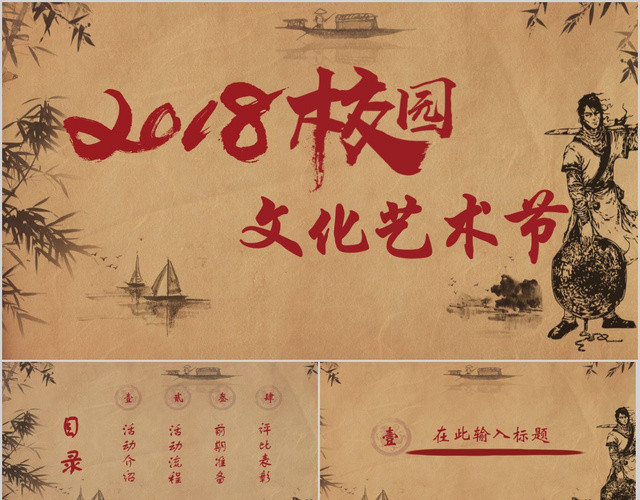 2018校园
文化艺术节
目录
壹
活动介绍
贰
活动流程
叁
前期准备
肆
评比表彰
壹
在此输入标题